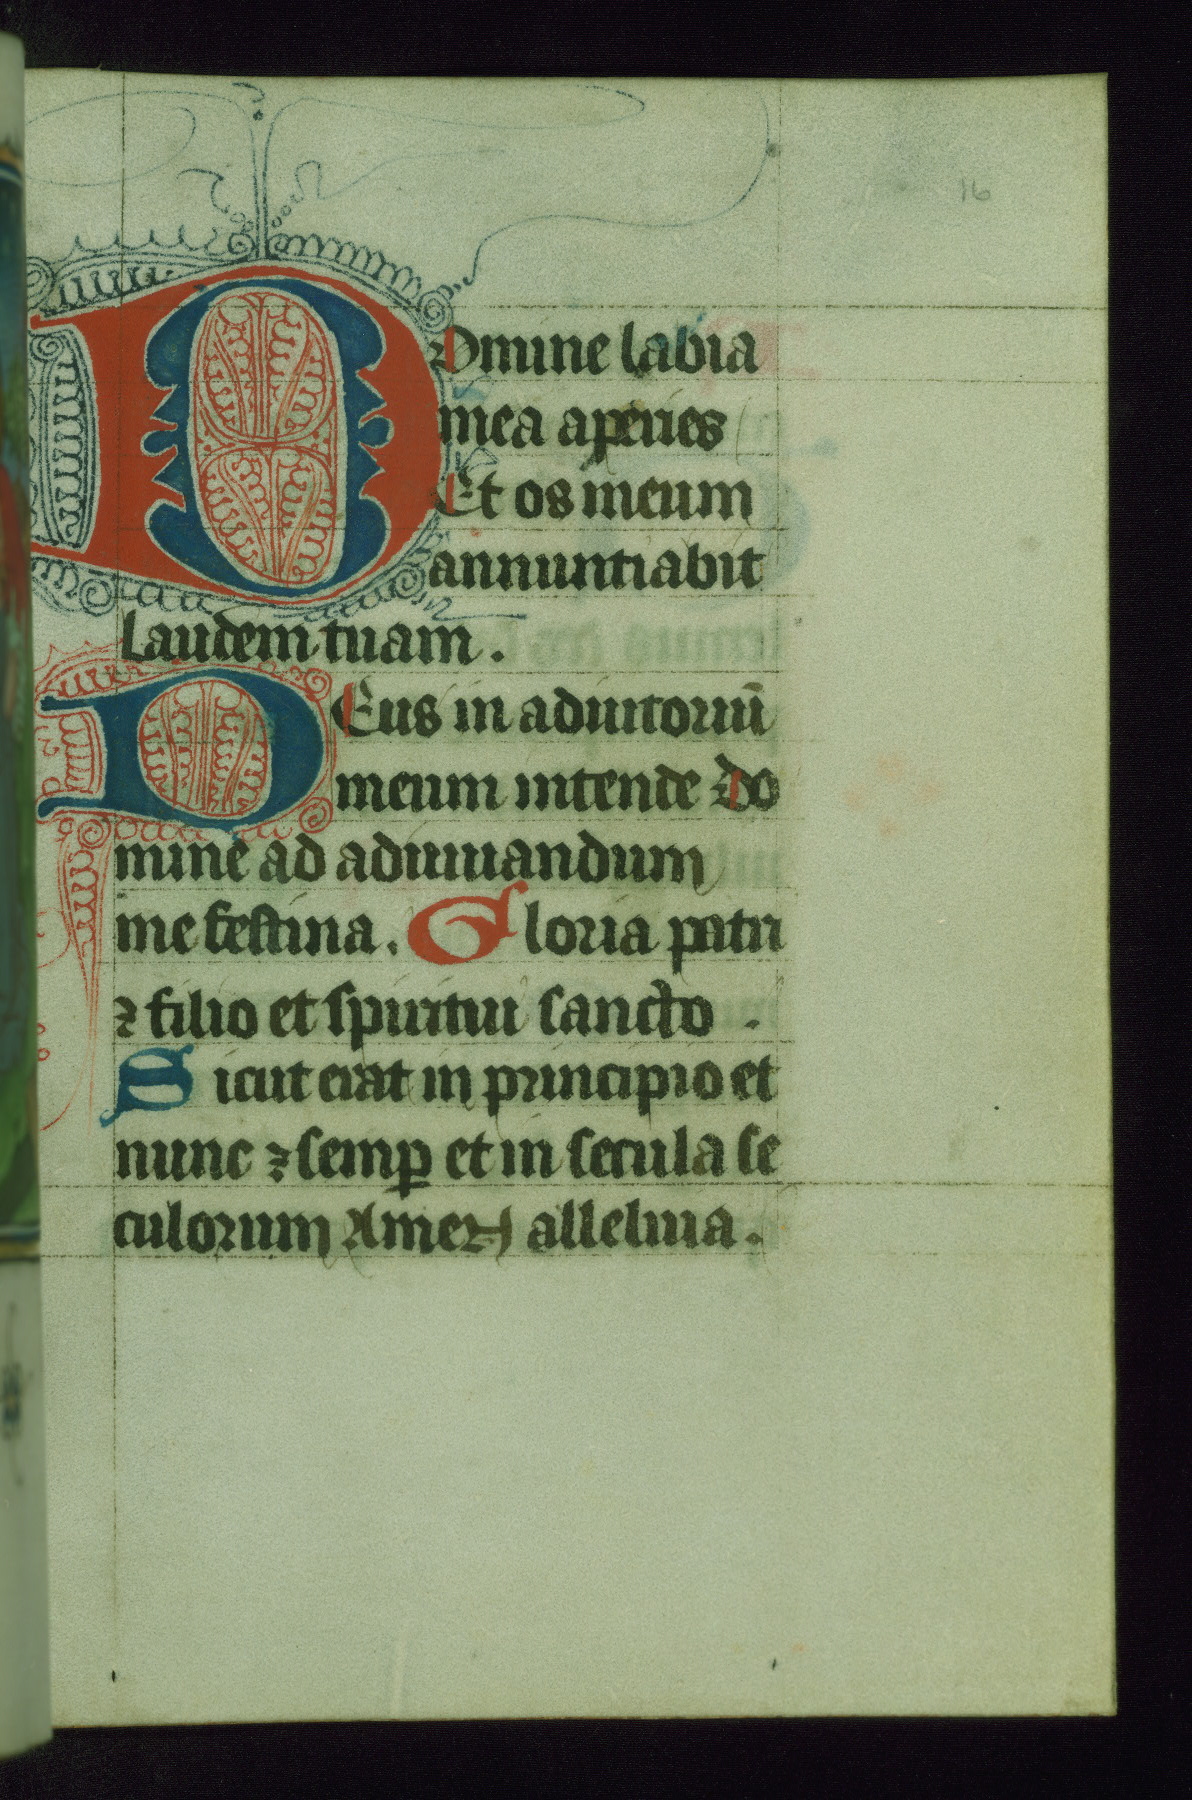 16
Domine labia
mea aperies
Et os meum
annuntiabit
laudem tuam.
DEus in adiutoriū
meum intende Do
mine ad adiuuandum
me festina. Gloria patri
⁊ filio et spiritui sancto.
Sicut erat in principio et
nunc ⁊ semꝑ et in secula se
culorum Amen alleluia.